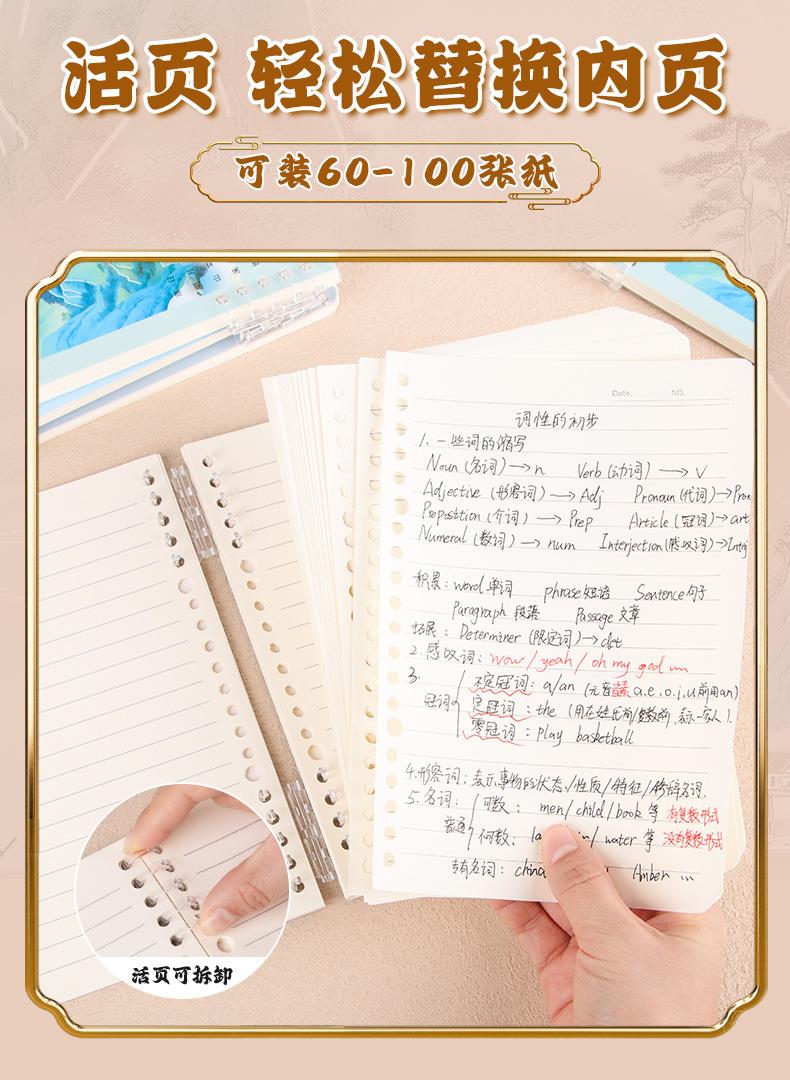 活页 轻松替换内页
可装60-100张纸
Date. NO.
词性的初步
1. 一些词的缩写
Noun (名词) → n Verb (动词) → v
Adjective (形容词) → Adj Pronoun (代词) → Pron
Preposition (介词) → Prep Article (冠词) → art
Numeral (数词) → num Interjection (感叹词) → Interj
积累: word 单词 phrase 短语 Sentence 句子
Paragraph 段落 Passage 文章
拓展: Determiner (限定词) → det
2. 感叹词: wow / yeah / oh my god
3.
不定冠词: a/an (元音 a.e.o.i.u前用an)
冠词 定冠词: the (用在姓氏前/复数前, 表示一家人).
零冠词: play basketball
4.形容词: 表示事物的状态/性质/特征/修辞名词.
5. 名词: 可数: men/child/book 等 有复数形式
普通 不可数: water 等 没有复数形式
专有名词: china Amber ...
活页可拆卸